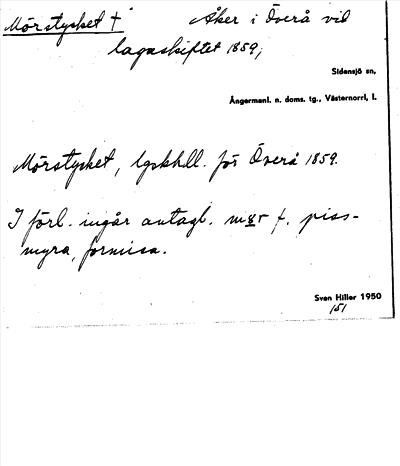 Mörstycket † Åker i Överå vid
lagaskiftet 1859;
Sidensjö sn,
Ångermanl. n. doms. tg., Västernorrl. l.
Mörstycket, lgskhll. för Överå 1859.
I förl. ingår antagl. mɤr f. piss-
myra, formica.
Sven Hiller 1950
151